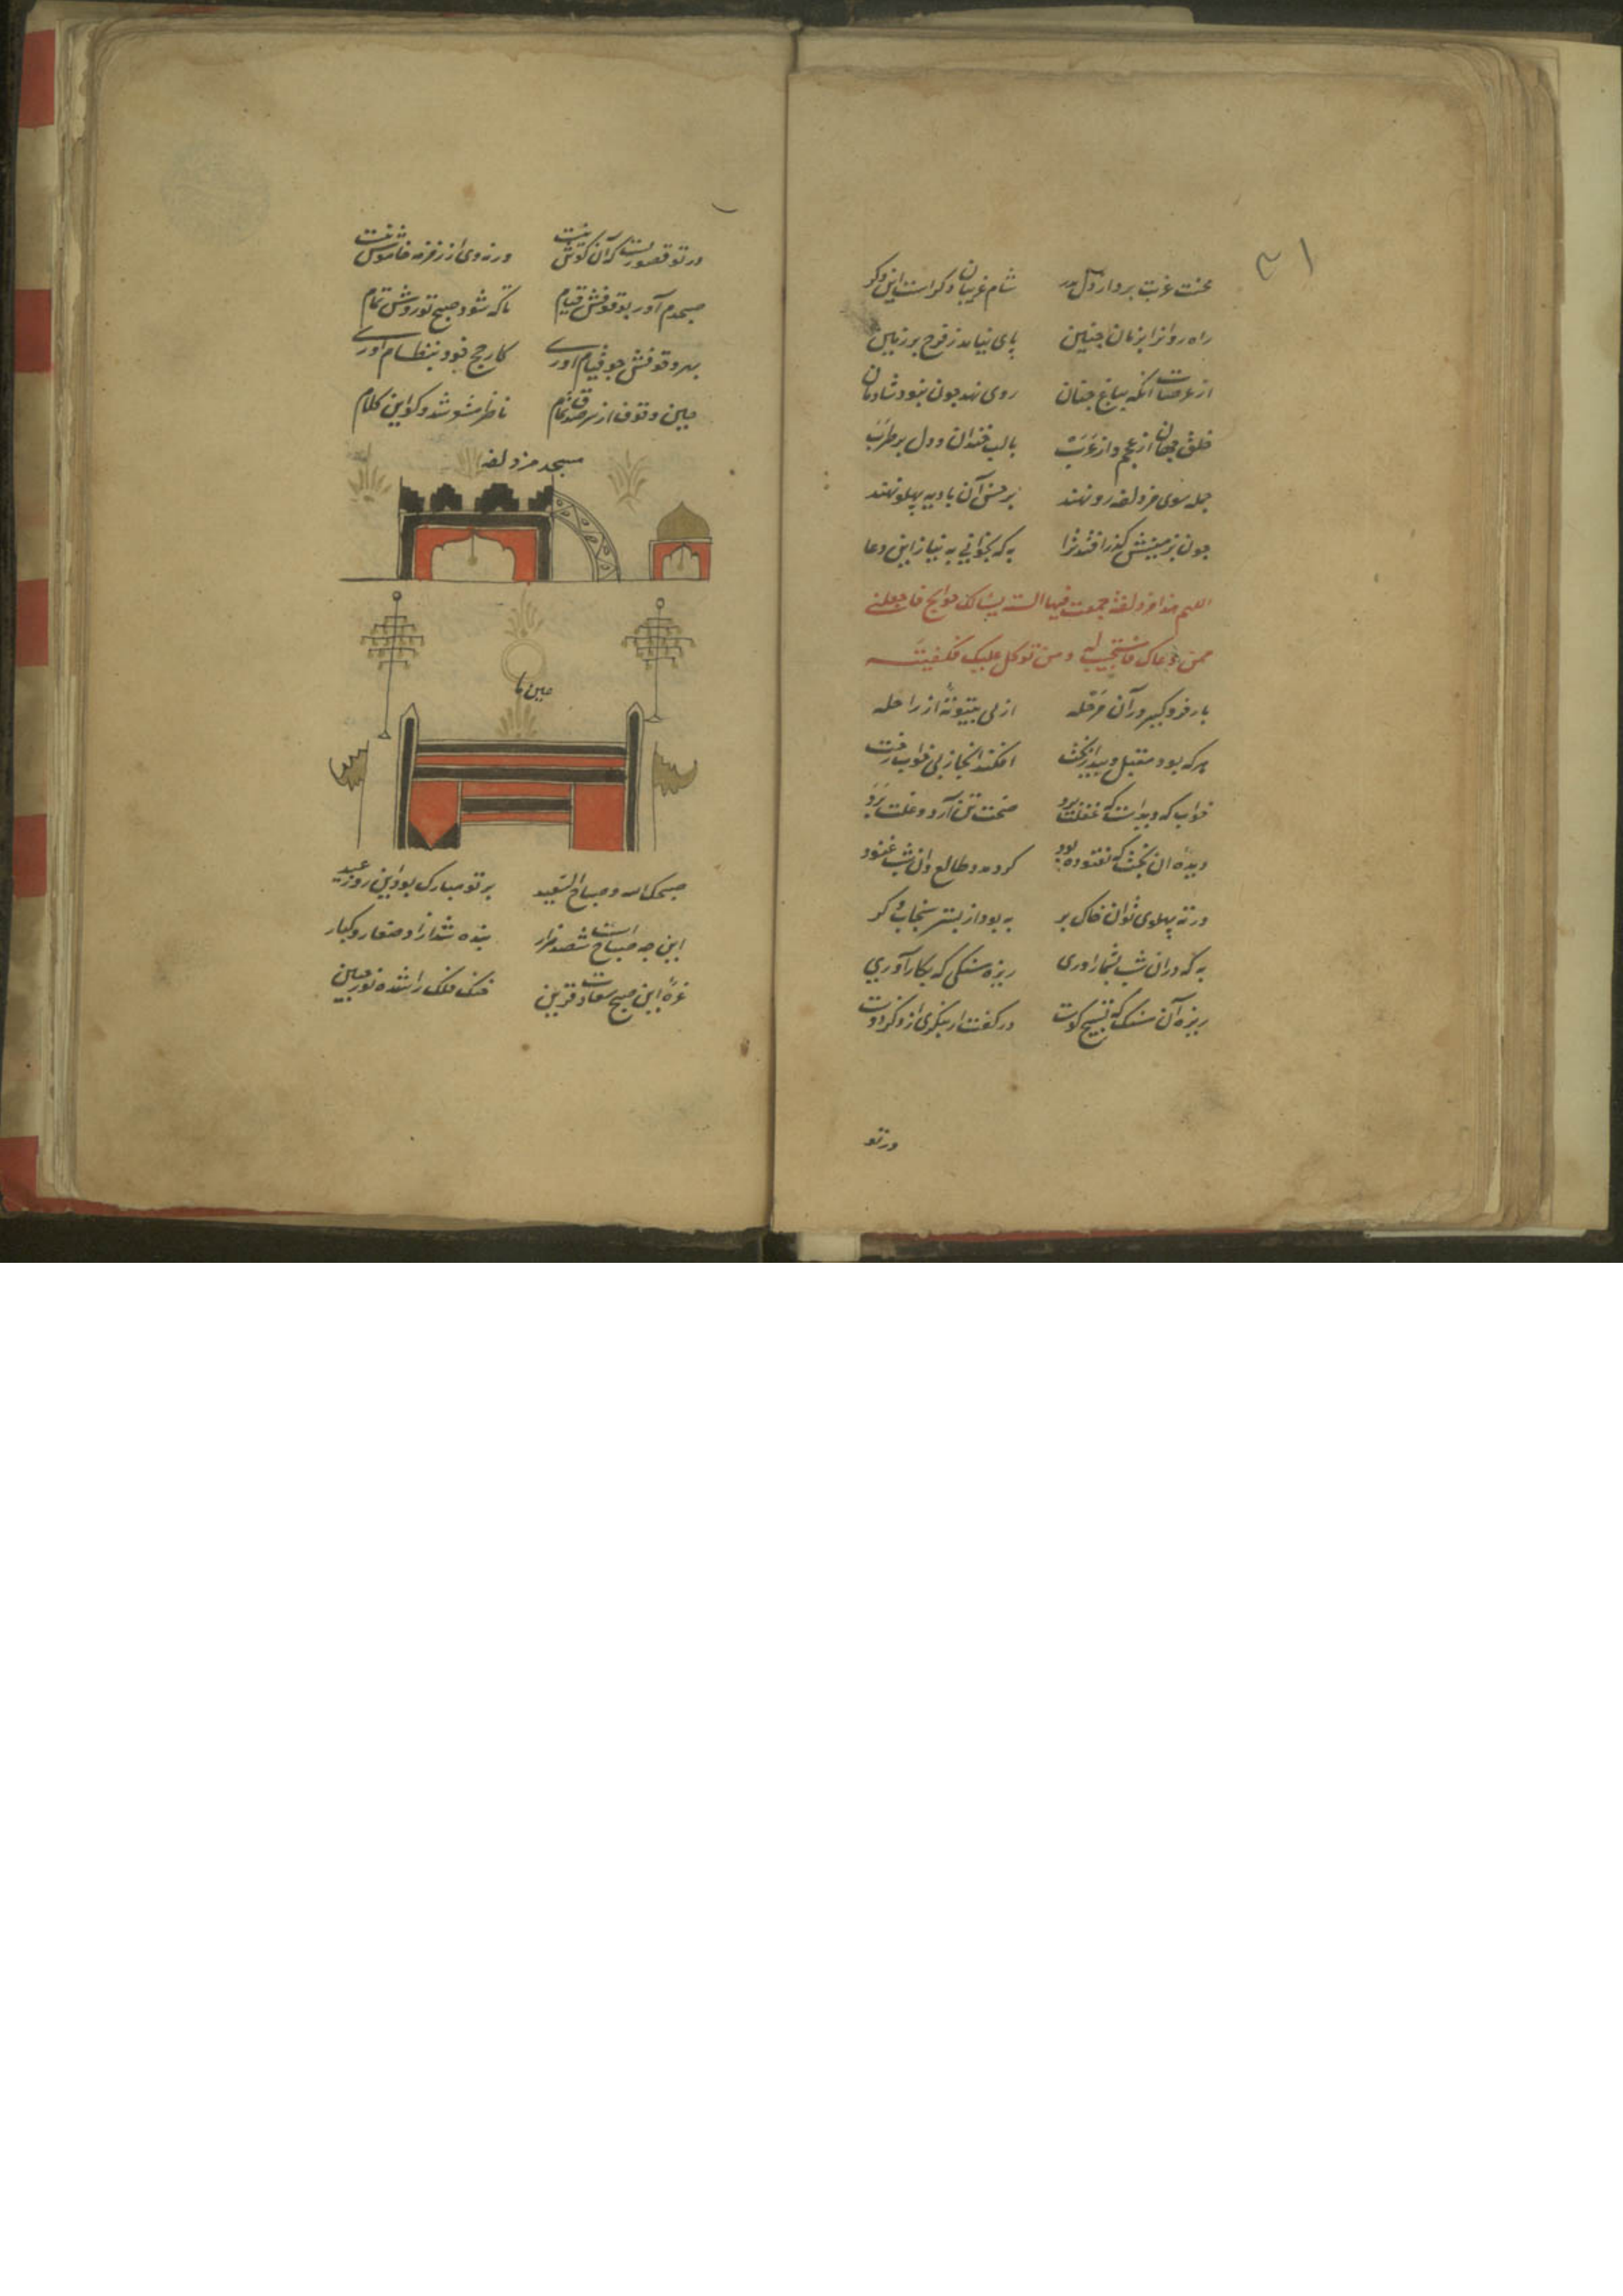 ۳۱
محنت غربت ببرد از دل
شام غریبان دگر است این دگر
راه روانرا بزمان چنین
پای نیاید ز فرح بر زمین
از عرفات آنکه بباغ جنان
روی نهد چون نبود شادمان
خلق جهان از عجم و از عرب
با لب خندان و دل پر طرب
جمله سوی مزدلفه رو نهند
بر خس آن بادیه پهلو نهند
چون بزمینش گذر افتد ترا
به که بخوانی به نیاز این دعا
اللهم هذا مزدلفة جمعت فیها السنة یسالک حوایج فاجعلنی
ممن دعاک فاستجبت له و من توکل علیک فکفیته
بار فرو گیر در آن مرحله
از پی بیتوته از راحله
هر که بود مقبل و بیدار بخت
افکند آنجا ز پی خواب رخت
خواب که دید است که غفلت برد
صحت تن آرد و علت برد
دیده آن بخت که نغنوده بود
کرد طالع و آن شب غنود
ورنه پهلوی توان خاک بر
به بود از بستر سنجاب و گر
به که در آن شب بشمار آوری
ریزه سنگی که بکار آوری
ریزه آن سنگ که تسبیح گوست
در کفت ار بنگری از ذکر دوست
در تو
در تو قصوریست که آن گوش نیست
ورنه وی از زمزمه خاموش نیست
صبحدم آور بوقوفش قیام
تا که شود صبح تو روشن تمام
بهر وقوفش چو قیام آوری
کار حج خود بنظام آوری
حین وقوف از سر صدق تمام
ناظم شوشد و گو این کلام
مسجد مزدلفه
میل‌ها
صبحک الله و صباح السعید
بر تو مبارک بود این روز عید
این چه صباح است که شد صد هزار
بنده شد آزاد صغار و کبار
غره این صبح سعادت قرین
خنک فلک را شده نور جبین